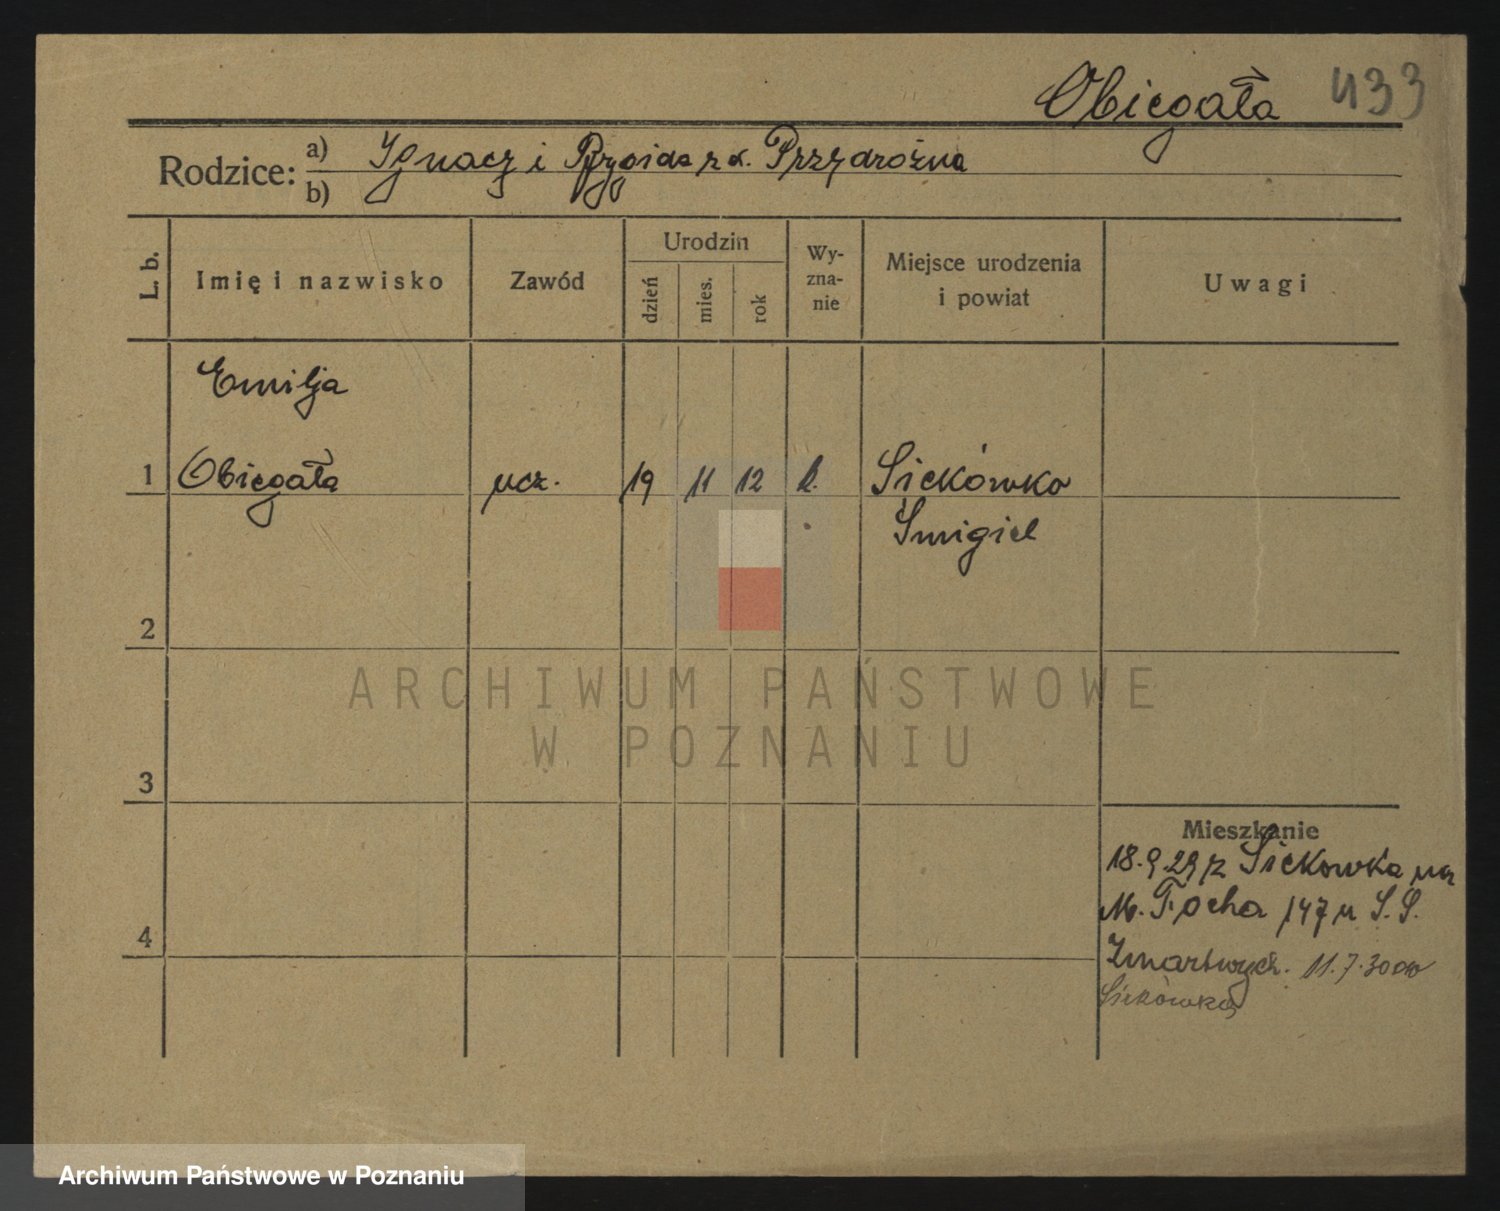 Obiegała 433
Rodzice: a) Ignacy i Brygida z d. Przydrożna
b)
L. b. Imię i nazwisko Zawód Urodzin dzień mies. rok Wy-zna-nie Miejsce urodzenia i powiat Uwagi
Emilja
1 Obiegała ucz. 19 11 12 k. Siekówko
Śmigiel
2
ARCHIWUM PAŃSTWOWE
W POZNANIU
3
Mieszkanie
18.9.29 z Siekówka na
M. Focha 147 u S.S.
4
Zmartwych. 11.7.30 do
Siekówka
Archiwum Państwowe w Poznaniu